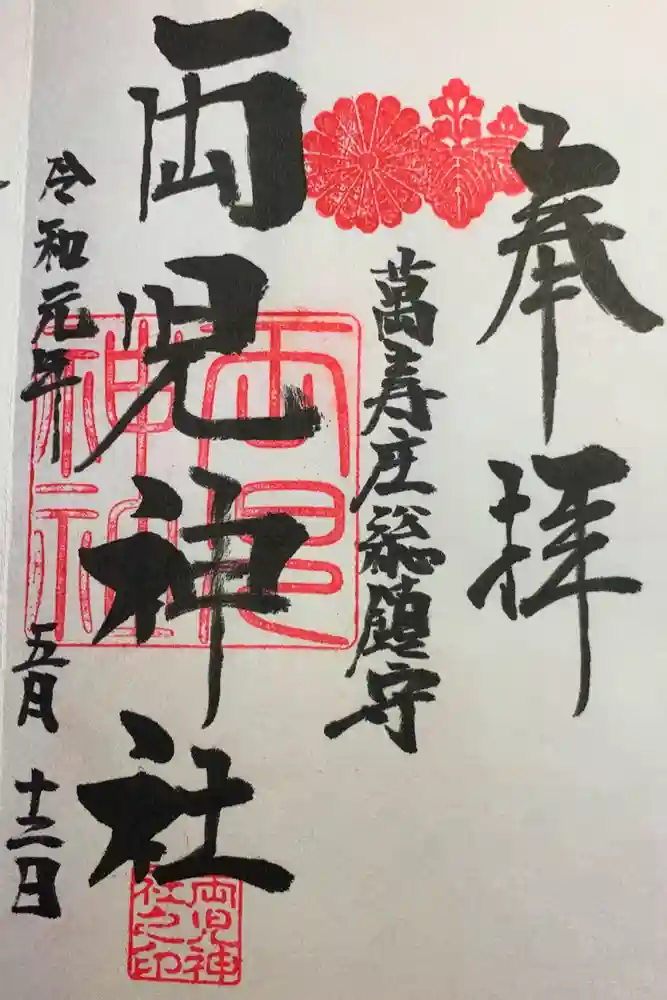 奉拝
萬寿庄総鎮守
両児神社
両児神社
両児神社之印
令和元年五月十二日